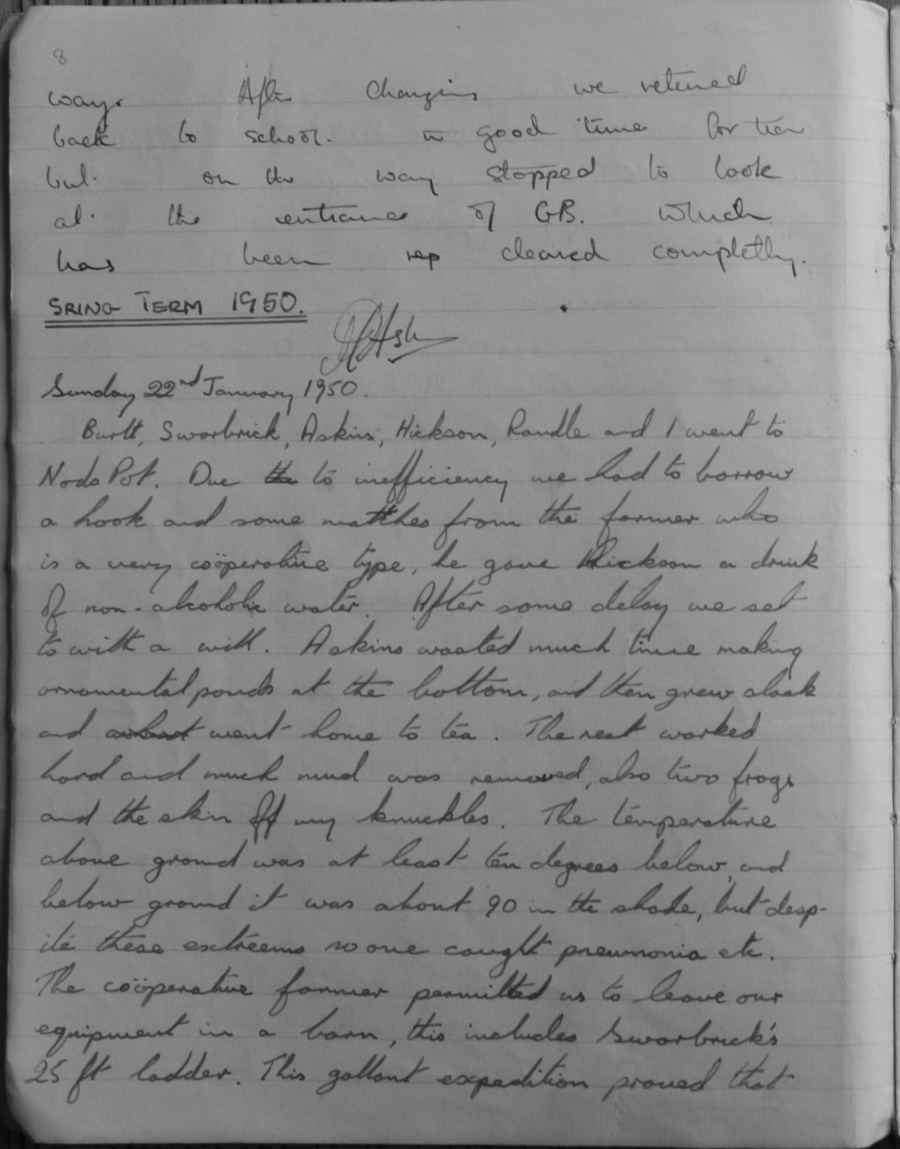 8
way. After changing we retured
back to school. in good time for tea
but on the way stopped to look
at the entrance of GB. which
has been rep cleared completly.
SRING TERM 1950.
Sunday 22nd January 1950.
Burtt, Swarbrick, Askins, Hickson, Randle and I went to
Nods Pot. Due the to inefficiency we had to borrow
a hook and some matches from the farmer who
is a very coöperative type, he gave Hickson a drink
of non-alcoholic water. After some delay we set
to with a will. Askins wasted much time making
ornamental ponds at the bottom, and then grew slack
and went home to tea. The rest worked
hard and much mud was removed, also two frogs
and the skin off my knuckles. The temperature
above ground was at least ten degrees below, and
below ground it was about 90 in the shade, but desp-
ite these extreems no one caught pneumonia etc.
The coöperative farmer permitted us to leave our
equipment in a barn, this includes Swarbrick's
25 ft ladder. This gallant expedition proved that